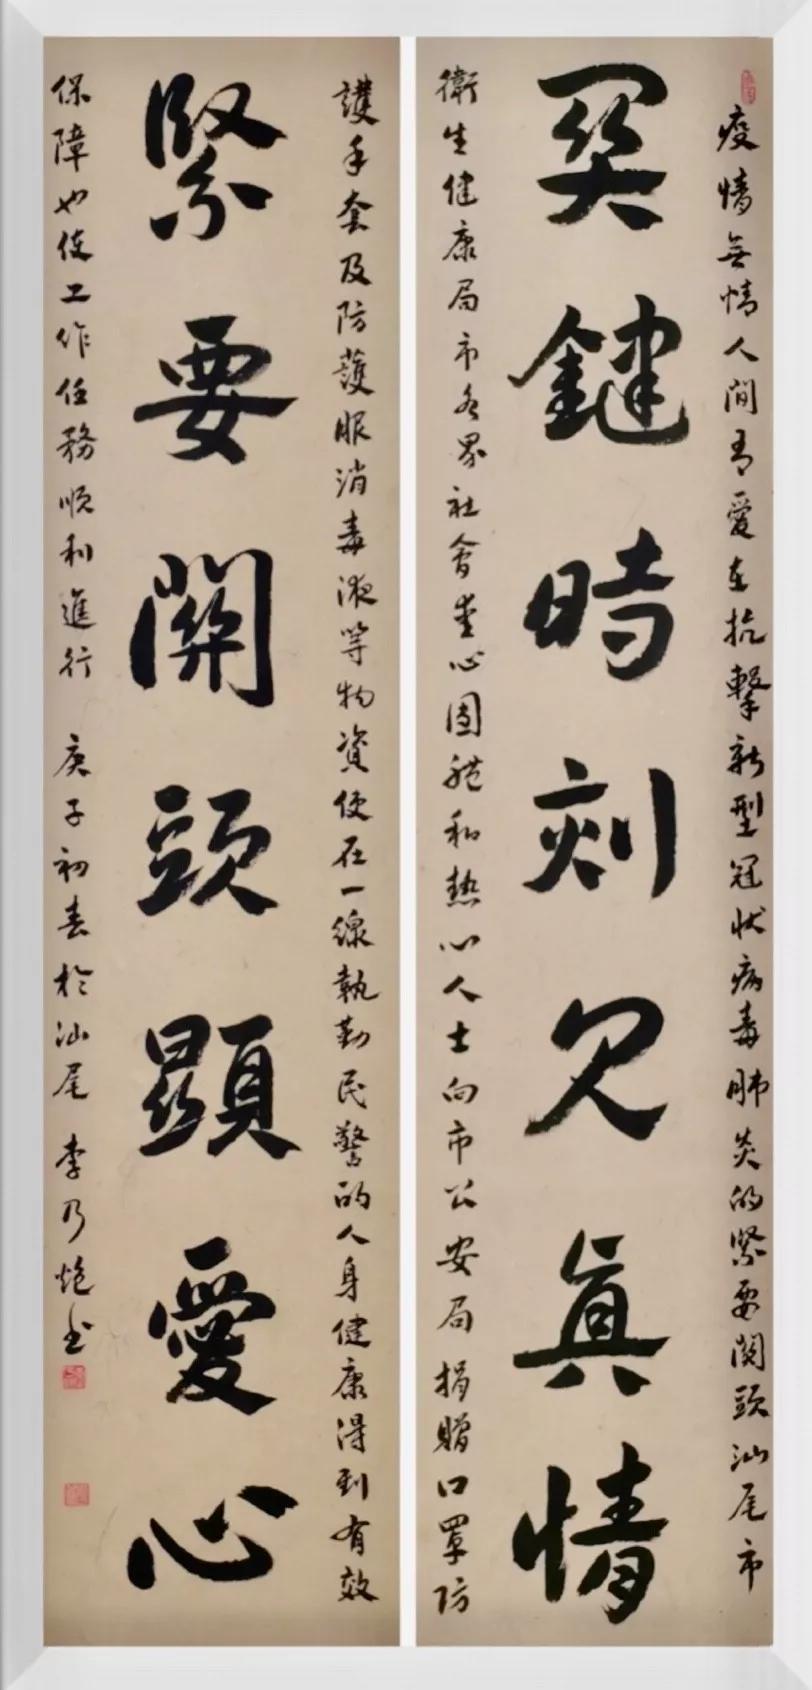 疫情無情人間有愛在抗擊新型冠狀病毒肺炎的緊要關頭汕尾市
關鍵時刻見真情
衛生健康局市各界社會愛心團體和熱心人士向市公安局捐贈口罩防
護手套及防護服消毒液等物資使在一線執勤民警的人身健康得到有效
緊要關頭顯愛心
保障也使工作任務順利進行 庚子初春於汕尾 李乃炮書